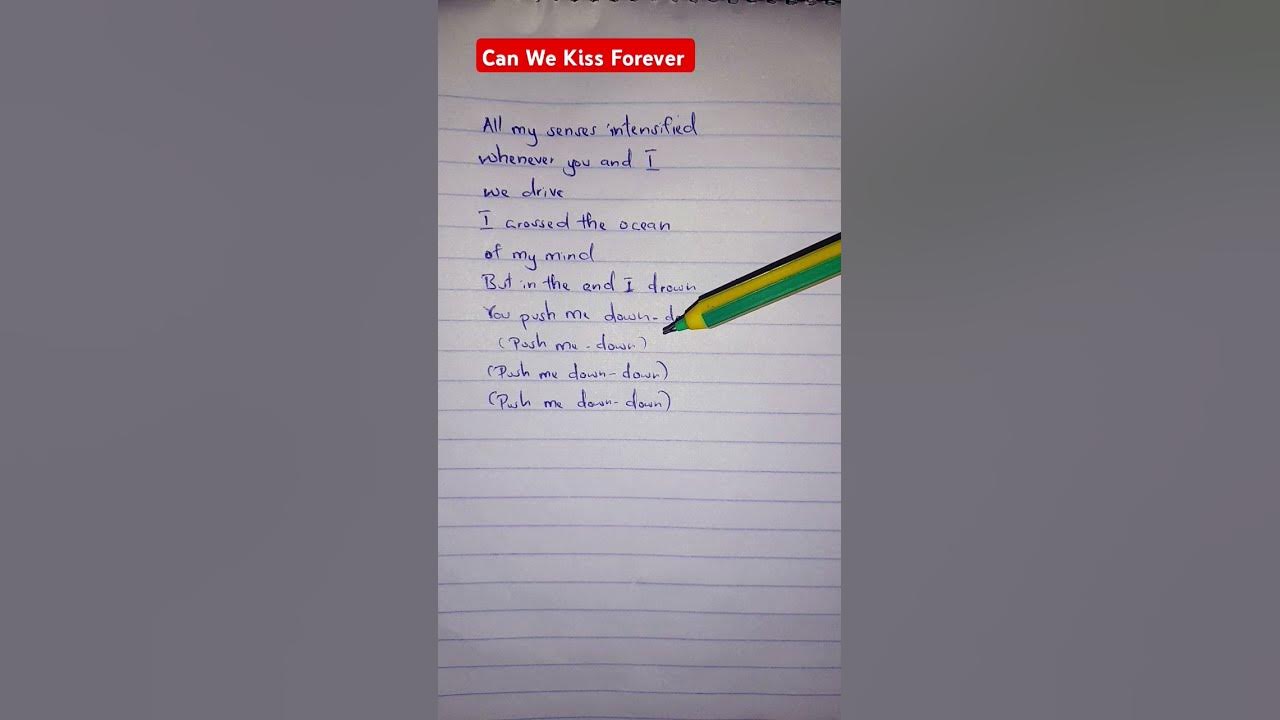 Can We Kiss Forever
All my senses intensified
whenever you and I
we drive
I crossed the ocean
of my mind
But in the end I drown
You push me down-
(Push me - down)
(Push me down-down)
(Push me down-down)